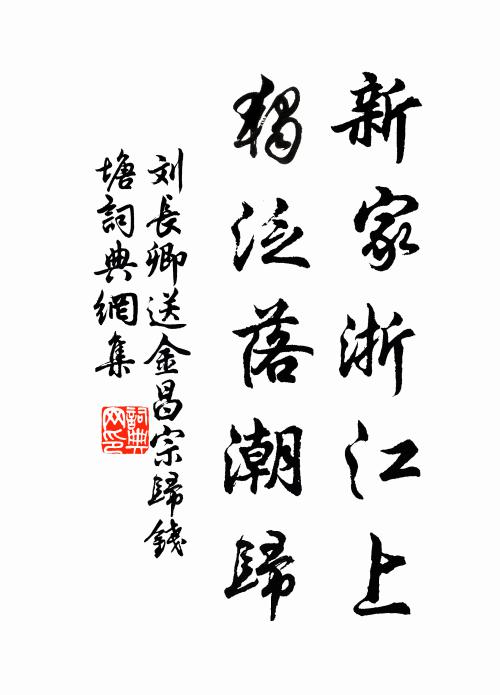 新家浙江上
獨泛落潮歸
刘長卿送金昌宗歸錢
塘詞典網集
詞典网印